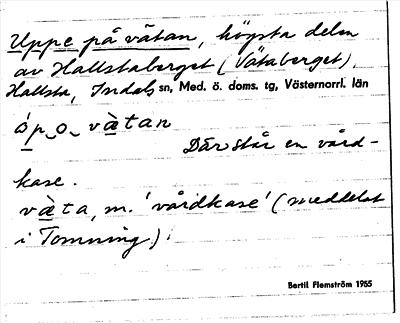 Uppe på vätan, högsta delen
av Hallstaberget (Vätaberget),
Hallsta, Indals sn, Med. ö. doms. tg, Västernorrl. län
óp‿o‿vàtan
Där står en vård-
kase.
vàta, m. 'vårdkase' (meddelat
i Tomming).
Bertil Flemström 1955